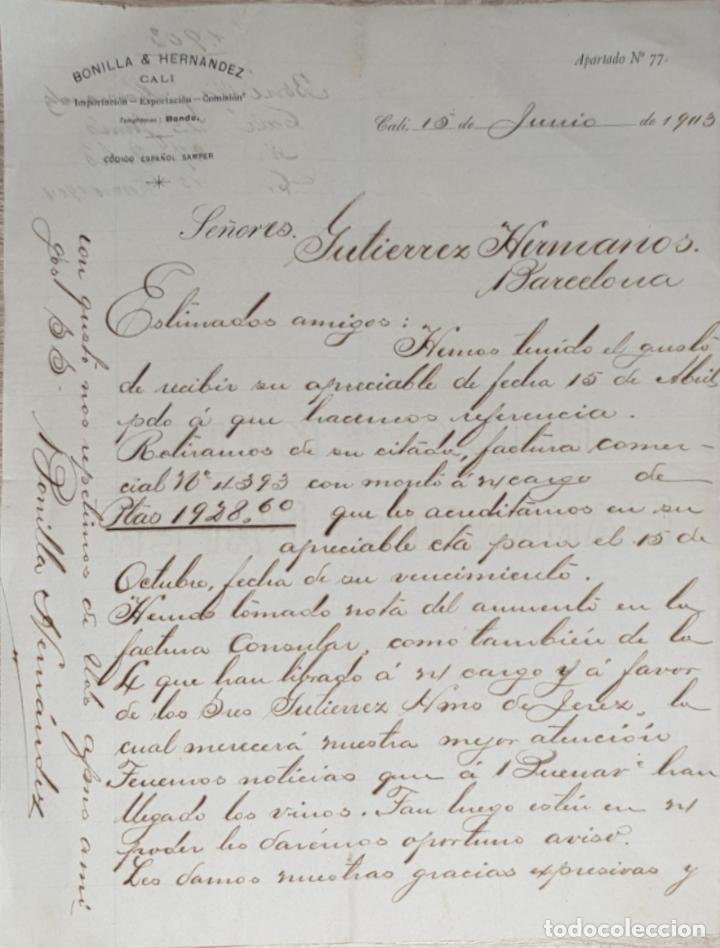 BONILLA & HERNANDEZ
CALI
Importación – Exportación – Comisión
Telegramas: Bonde.
CÓDIGO ESPAÑOL SAMPER
Apartado Nº 77.
Cali, 15 de Junio de 1903
Señores. Gutierrez Hermanos.
Barcelona
Estimados amigos:
Hemos tenido el gusto
de recibir su apreciable de fecha 15 de Abril
pdo á que hacemos referencia.
Retiramos de su citada, factura comer-
cial Nº 4393 con monto á n/ cargo de
Ptas 1928.60 que les acreditamos en su
apreciable cta para el 15 de
Octubre, fecha de su vencimiento.
Hemos tomado nota del aumento en la
factura Consular, como también de la
L/ que han librado á n/ cargo y á favor
de los Sres Gutierrez Hnos de Jerez, la
cual merecerá nuestra mejor atención
Tenemos noticias que á Buenava han
llegado los vinos. Tan luego estén en n/
poder les daremos oportuno aviso.
Les damos nuestras gracias expresivas y
con gusto nos repetimos de Uds afmos ami
gos. S S.
Bonilla Hernández
todocoleccion